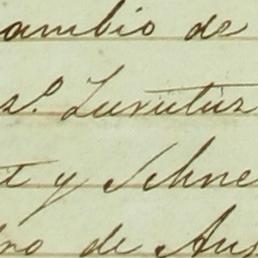 ambio de
z.º Zurutuz
t y Schne
dro de Aug